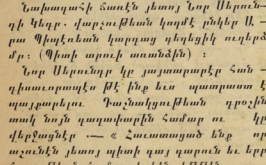 Նախագահի ճառէն յետոյ Նոր Սերուն-
դի Կեդր. վարչութեան կողմէ ընկեր Ա —
րա Պիպէռեան կարդաց գեղեցիկ ուղերձ
մը։ (Պիտի տրուի առանձին) ։
Նոր Սերունդը կը յայտարարէր Հան —
դիսաւորապէս թէ՝ ինք եւս պատրաստ է
պայքարելու Դաշնակցութեան դրօշին
տակ նոյն գաղափարին համար ու կը
վերջացնէր .— « Հաւատացած ենք որ
աշունէն յետոյ պիտի գայ գարուն եւ երբ